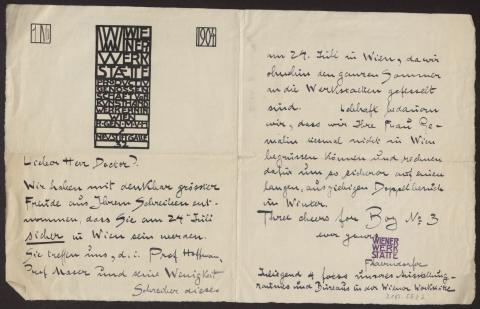 1904
WIENER
WERK
STÄTTE
PRODUCTIV
GENOSSEN
SCHAFT VON
KUNSTHAND
WERKERN IN
WIEN
R·GEN·M·U·H
7
NEUSTIFTGASSE
32
Lieber Herr Doctor!
Wir haben mit denkbar grösster
Freude aus Ihrem Schreiben ent-
nommen, dass Sie am 24ten Juli
sicher in Wien sein werden.
Sie treffen uns, d.i. Prof Hoffmann,
Prof Moser und seine Wenigkeit
Schreiber dieses
am 24. Juli in Wien, da wir
ohnehin den ganzen Sommer
an die Werkstätten gefesselt
sind. Lebhaft bedauern
wir, dass wir Ihre Frau Ge-
malin diesmal nicht in Wien
begrüssen können und rechnen
dafür um so sicherer auf einen
langen, ausgiebigen Doppelbesuch
im Winter.
Three cheers for Boy No 3
ever yours
WIENER
WERK
STÄTTE
FWaerndorfer
Inliegend 4 fotos unseres Ausstellungs-
raumes und Bureaus in der Wiener Werkstätte